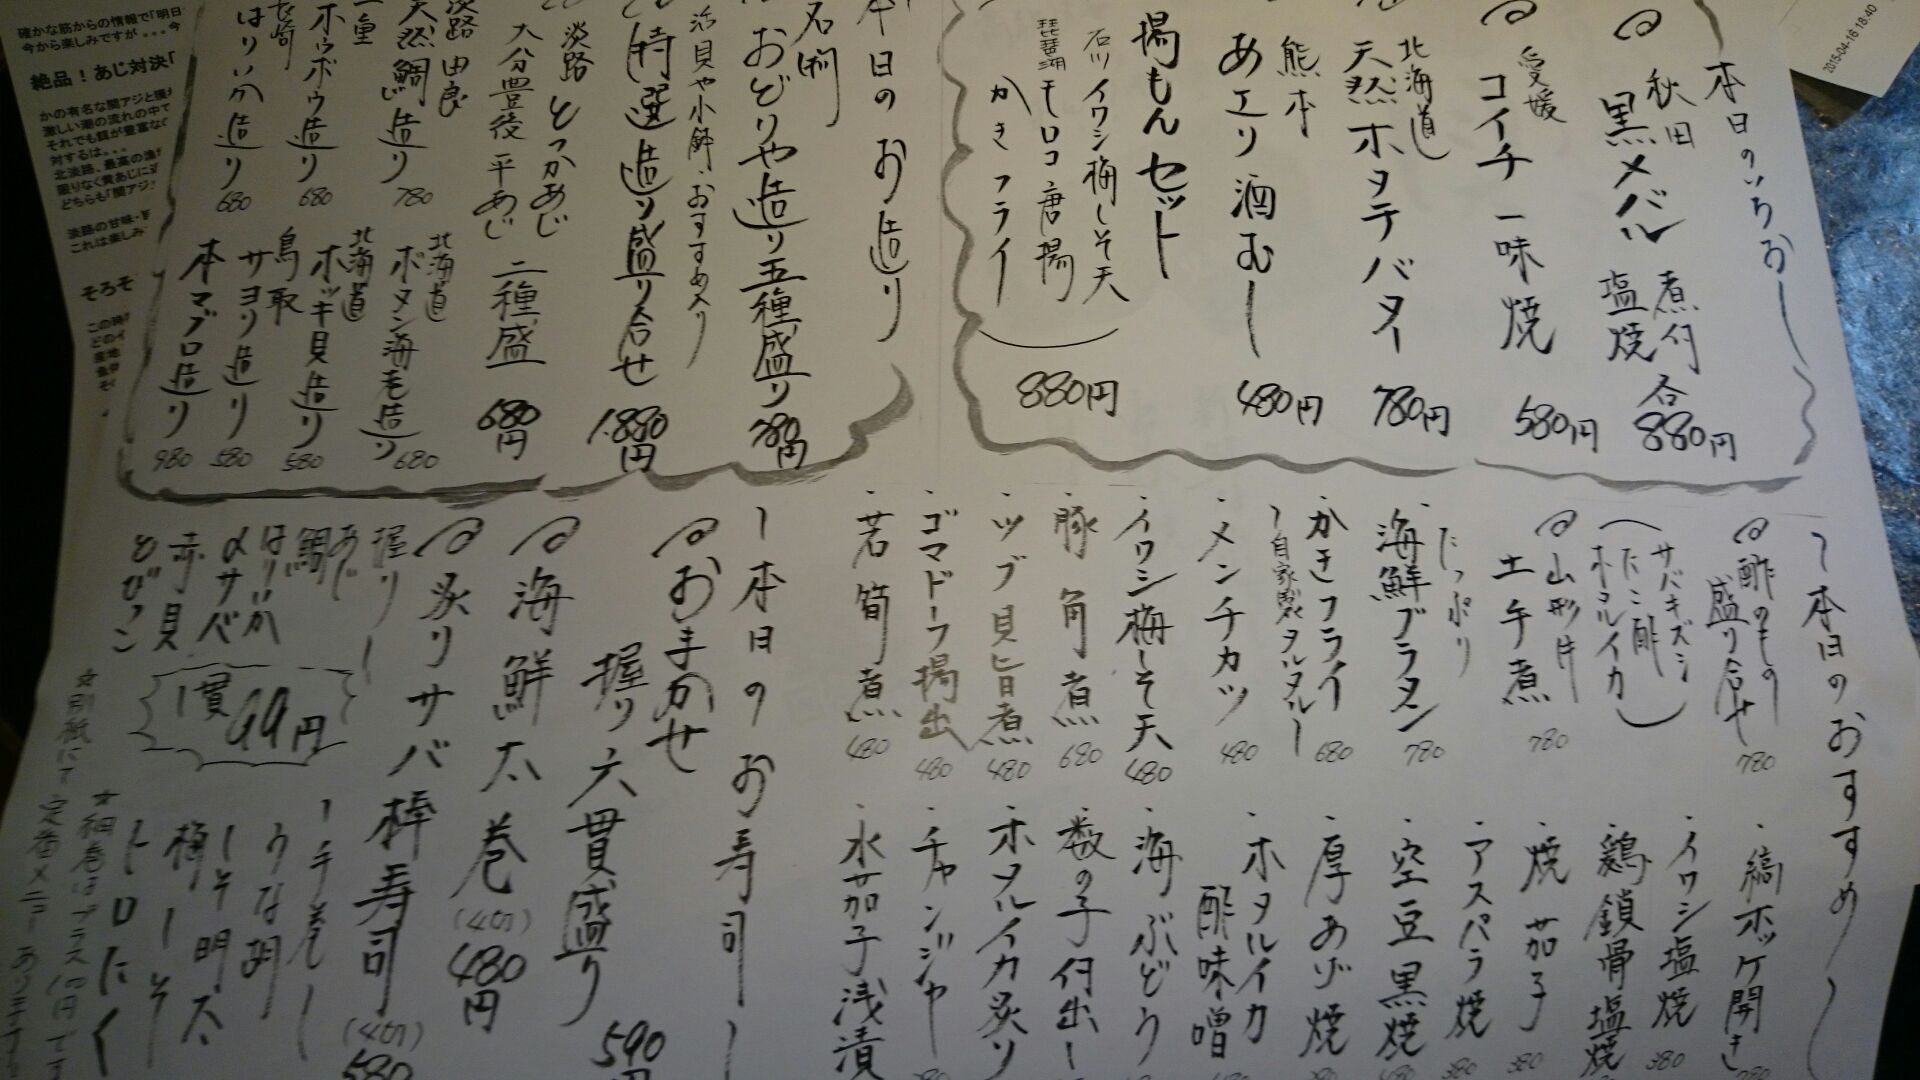 本日のいちおしー
秋田
黒メバル
煮付
塩焼
各
880円
愛媛
コイチ一味焼
580円
北海道
天然ホタテバター
780円
熊本
あエリ酒むしー
480円
揚もんセット
石川イワシ梅しそ天
琵琶湖モロコ唐揚
かきフライ
880円
本日のお造り
名門
おどりや造り五種盛り
780円
活貝や小餅、おすすめ入り
特選造り盛り合せ
1.880円
淡路とっかあじ
大分豊後平あじ
二種盛
680円
淡路由良
天然鯛造り
780
三重
ホウボウ造り
680
長崎
はりいか造り
680
北海道
ボタン海老造り
680
北海道
ホッキ貝造り
580
鳥取
サヨリ造り
580
本マグロ造り
980
〜本日のおすすめ〜
酢のもの
盛り合せ
780
サバキズシ
たこ酢
ホタルイカ
山形牛
土手煮
780
・たっぷり
海鮮グラタン
780
・かきフライ
〜自家製タルタル〜
680
・メンチカツ
480
・イワシ梅しそ天
480
・豚角煮
680
・ツブ貝旨煮
480
・ゴマドーフ揚出
480
・若筍煮
480
・縞ホッケ開き
・イワシ塩焼
380
・鶏鎖骨塩焼
・焼茄子
380
・アスパラ焼
380
・空豆黒焼
480
・厚あげ焼
380
・ホタルイカ
酢味噌
・海ぶどう
・数の子付出し
・ホタルイカ炙り
・チャンジャ
・水茄子浅漬
〜本日のお寿司〜
おまかせ
握り六貫盛り
590円
海鮮太巻
(4切)
480円
炙りサバ棒寿司
(4切)
580
握り〜
あじ
鯛
はりいか
〆サバ
赤貝
とびっこ
1貫99円
〜手巻〜
うな胡
しそ明太
梅しそ
トロたく
☆細巻はプラス100円です
☆別紙にて定番メニューあります
確かな筋からの情報で「明日
今から楽しみですが...今
絶品！あじ対決「
かの有名な関アジと
激しい潮の流れの中で
それでも餌が豊富な
対するは...
北淡路、最高の漁
限りなく黄あじに
どちらも「関アジ
淡路の甘味・
これは楽しみ
そろそ
この時
どの
産地
2015-04-16 18:40